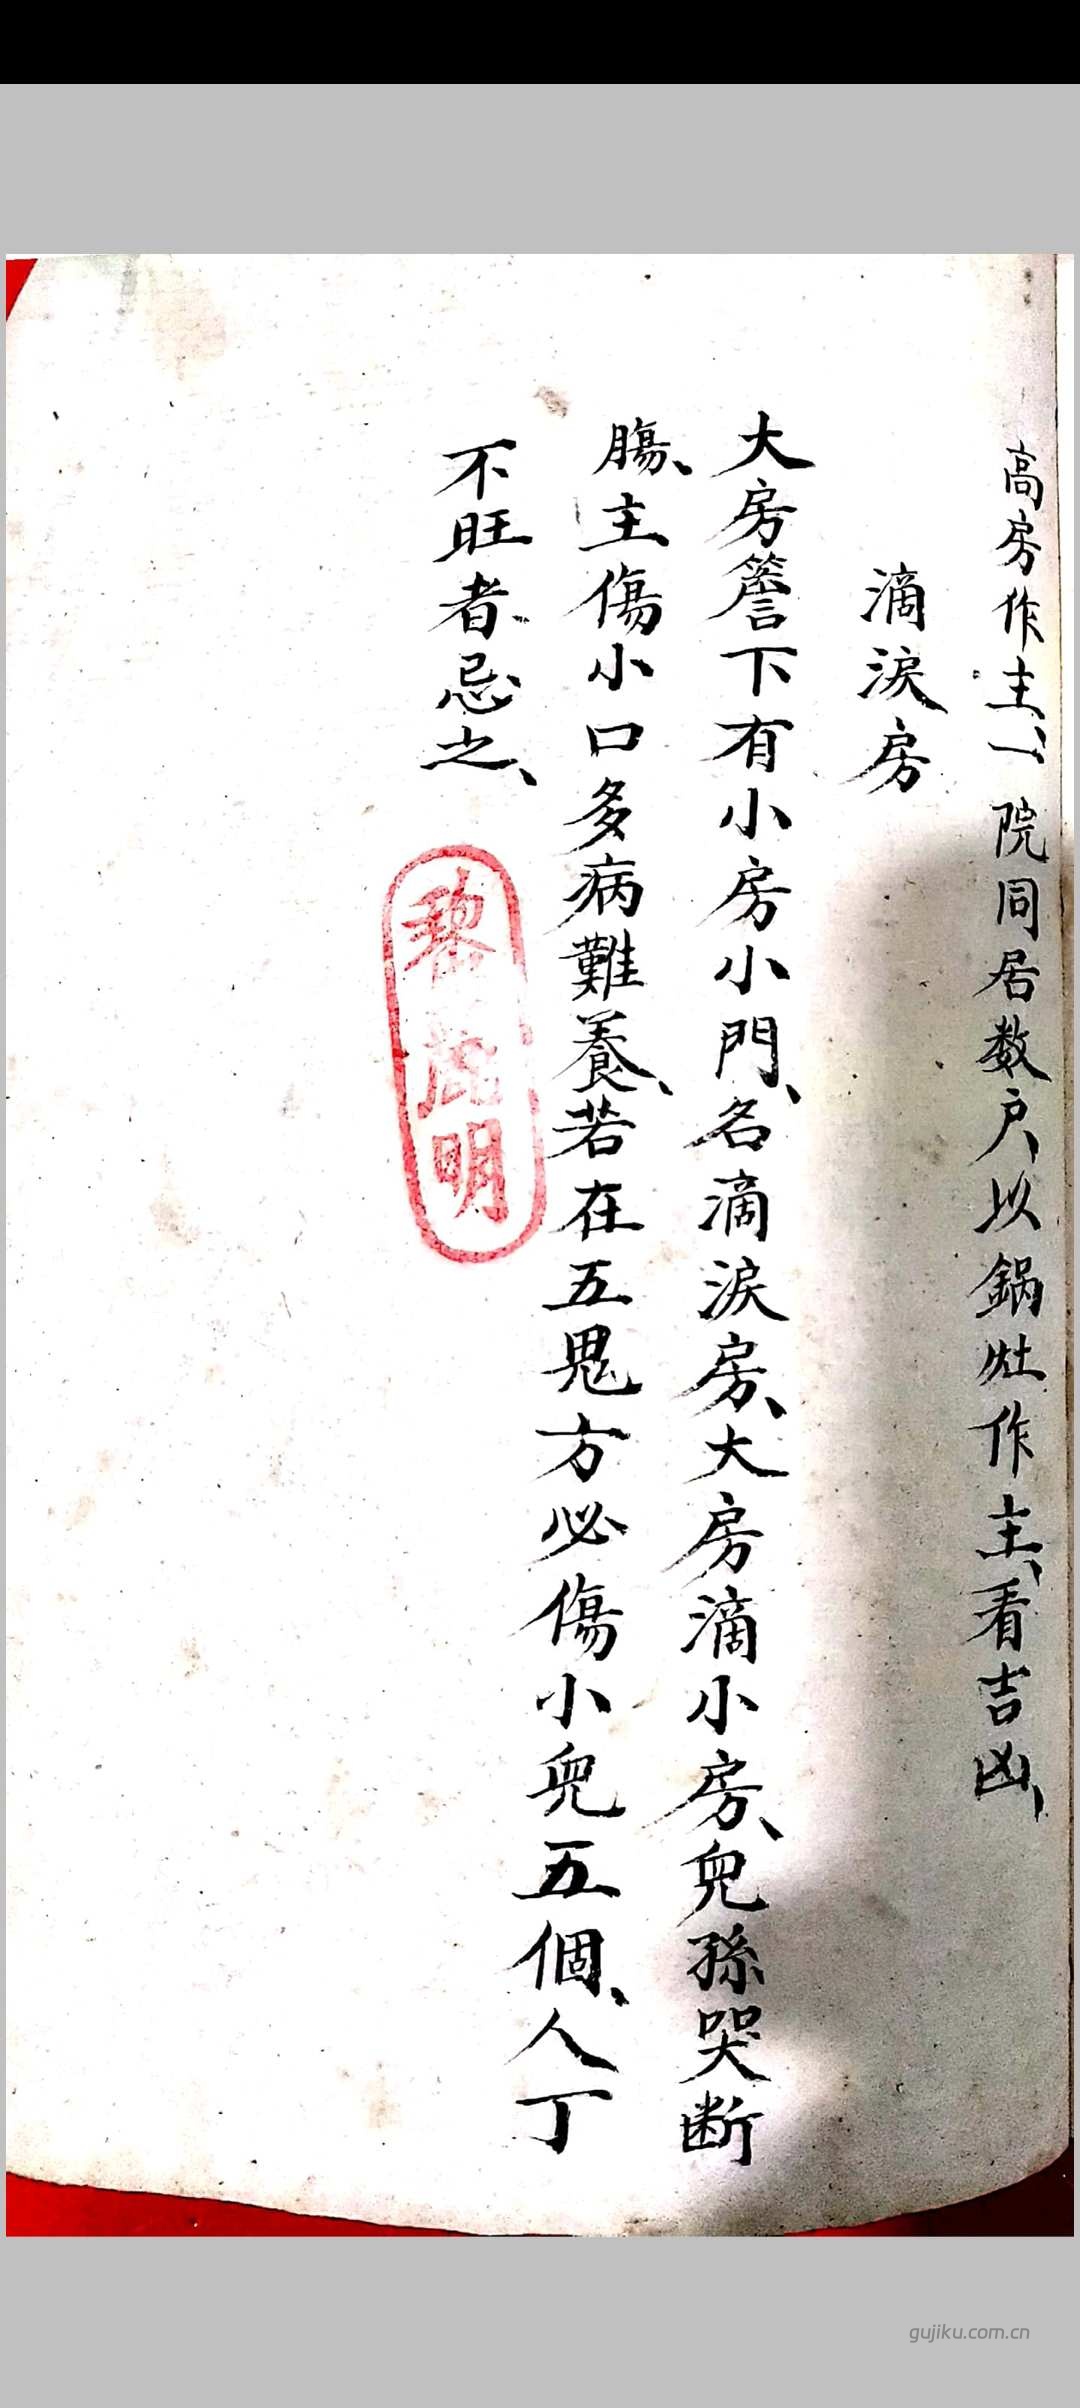 高房作主、一院同居数户、以鍋灶作主、看吉凶、
滴淚房
大房簷下有小房小門、名滴淚房、大房滴小房、兒孫哭断
腸、主傷小口多病難養、若在五鬼方必傷小兒五個、人丁
不旺者、忌之、
黎 明
gujiku.com.cn